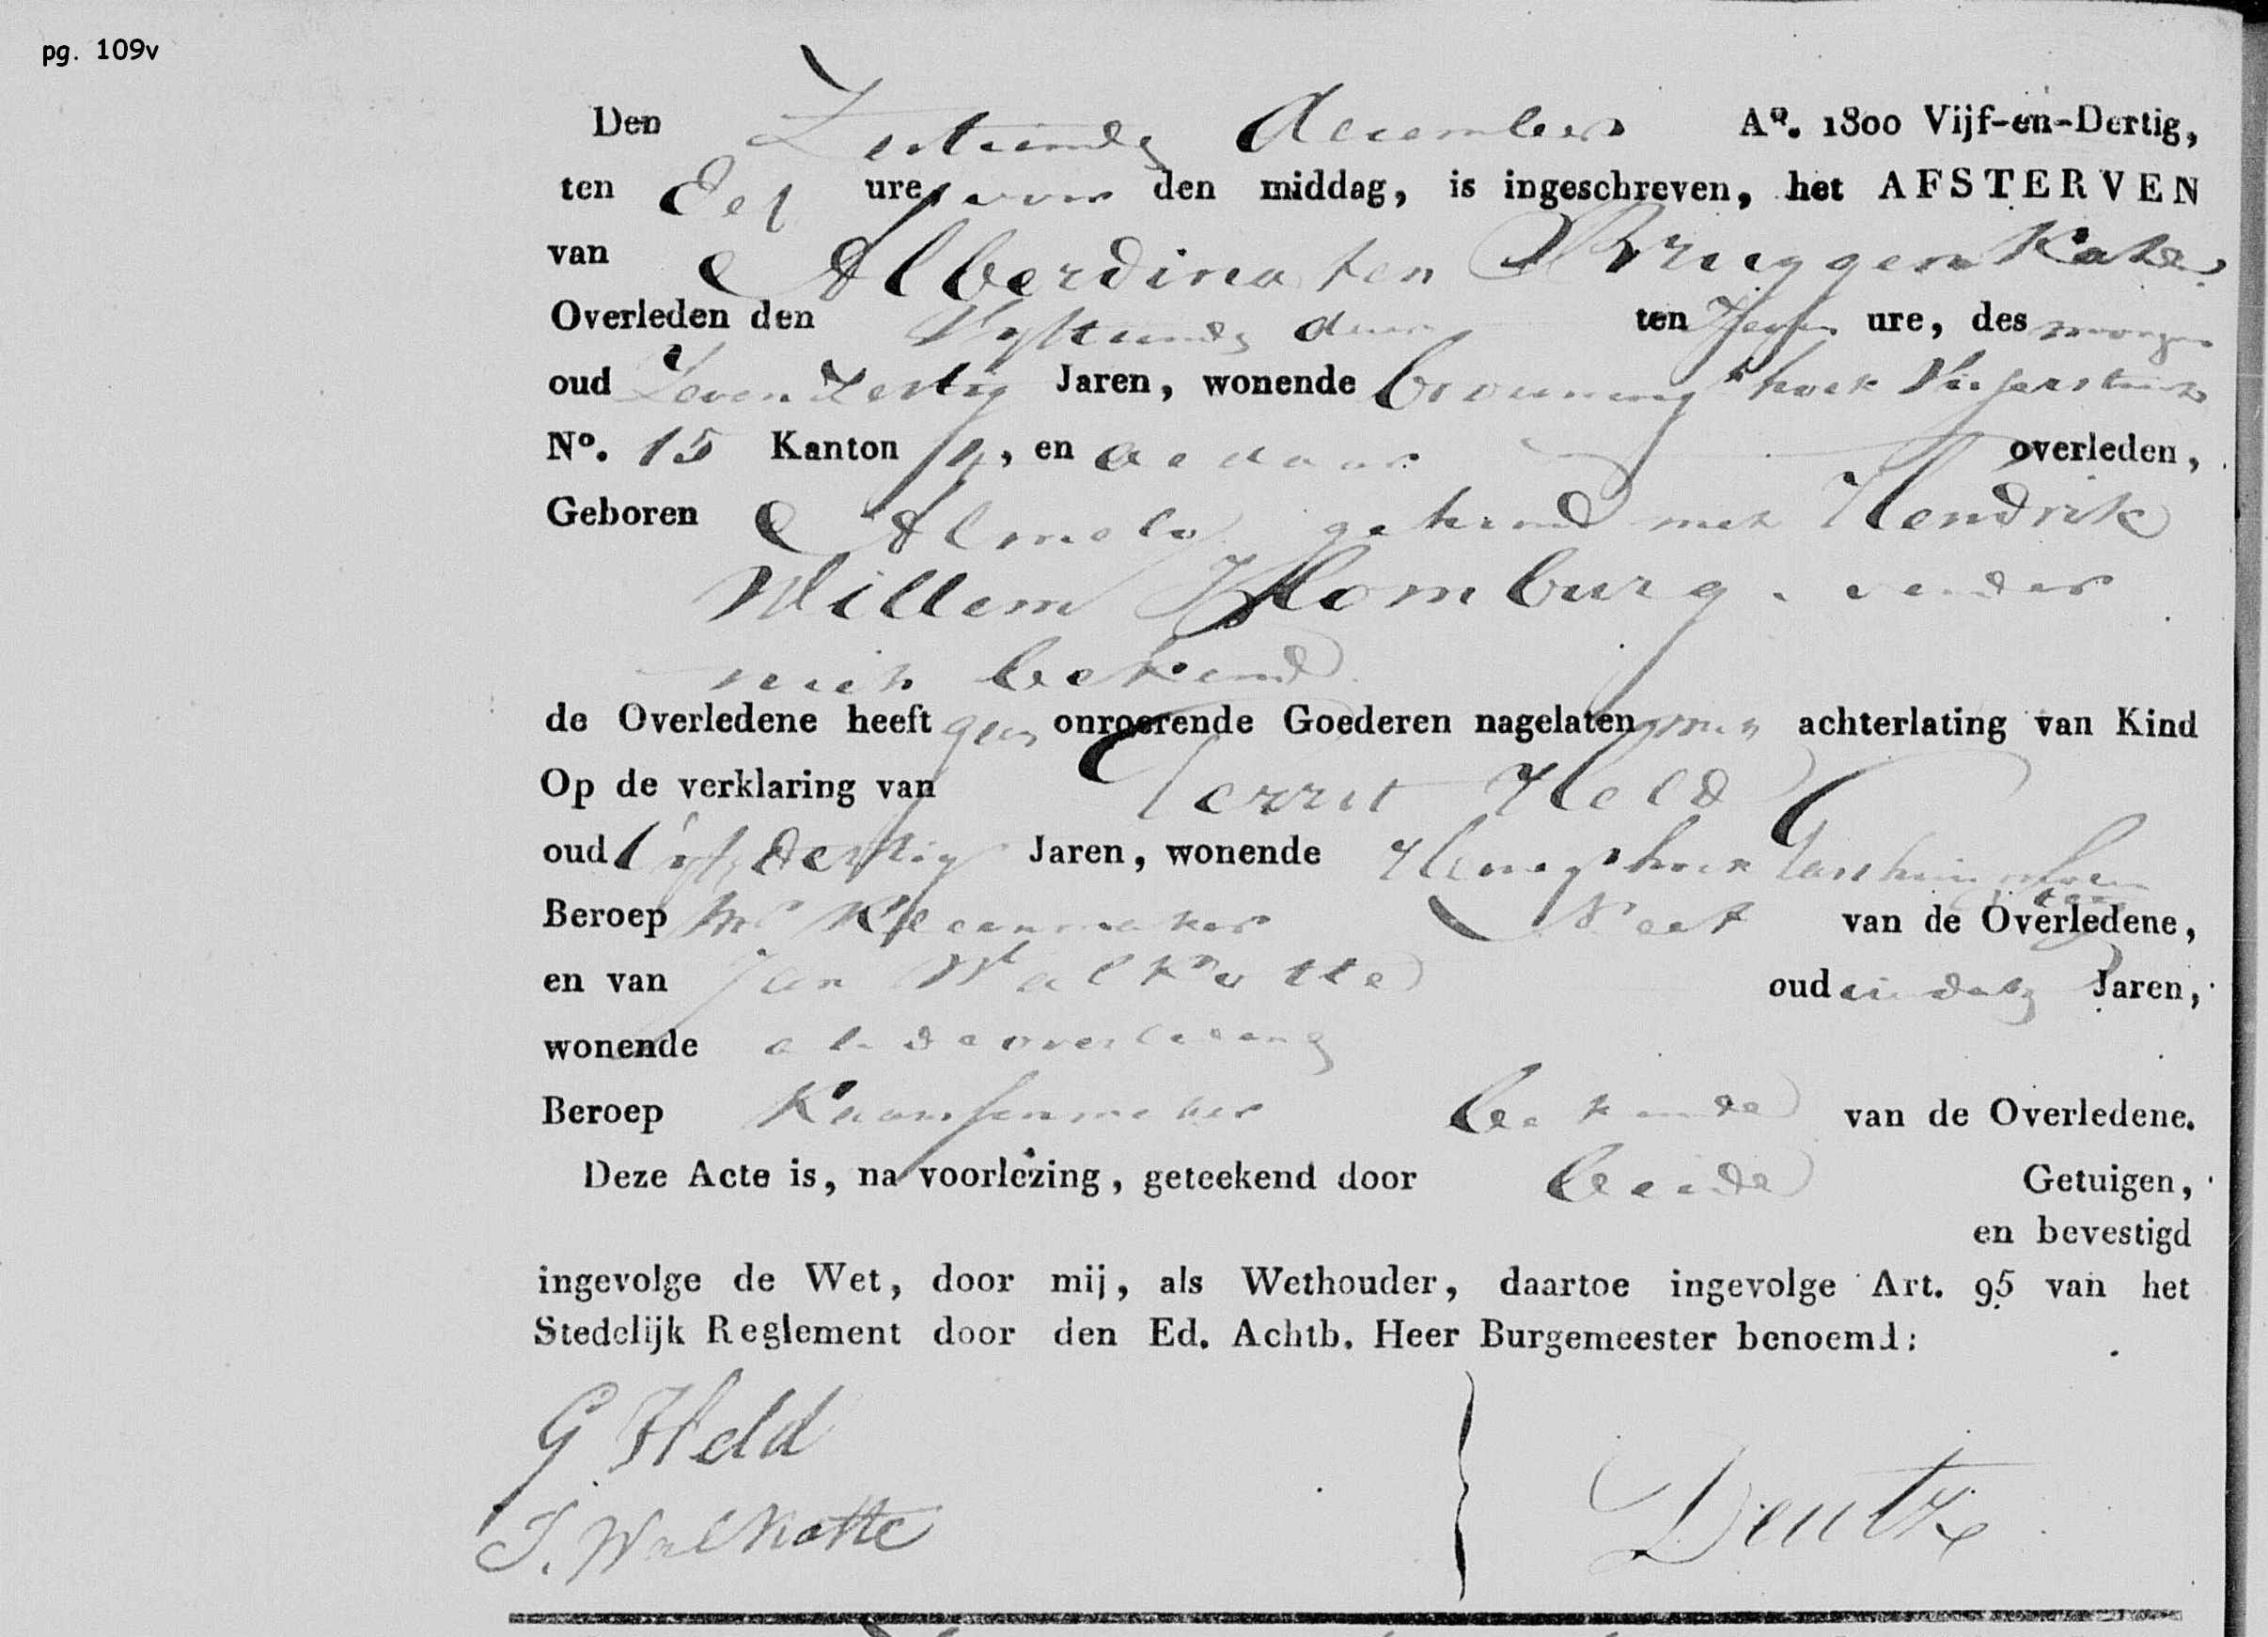 pg. 109v
Den Zestiende december Aº. 1800 Vijf-en-Dertig,
ten Elf ure voor den middag, is ingeschreven, het AFSTERVEN
van Alberdina ten Bruggen Kate
Overleden den Vyftiende dezer ten Zeven ure, des morgens
oud Zeven Zestig Jaren, wonende hoek
Nº. 15 Kanton 9, en aldaar overleden,
Geboren Almelo gehuwd met Hendrik
Willem Homburg. verder
niet bekend
de Overledene heeft geen onroerende Goederen nagelaten, met achterlating van Kind
Op de verklaring van Gerrit Held
oud Vyf dertig Jaren, wonende
Beroep Kleermaker Neef van de Overledene,
en van Jan Walkotte oud Jaren,
wonende als de overledene
Beroep Kaarsenmaker bekende van de Overledene.
Deze Acte is, na voorlezing, geteekend door beide Getuigen,
en bevestigd
ingevolge de Wet, door mij, als Wethouder, daartoe ingevolge Art. 95 van het
Stedelijk Reglement door den Ed. Achtb. Heer Burgemeester benoemd:
G Held
J. Walkotte
Deutz